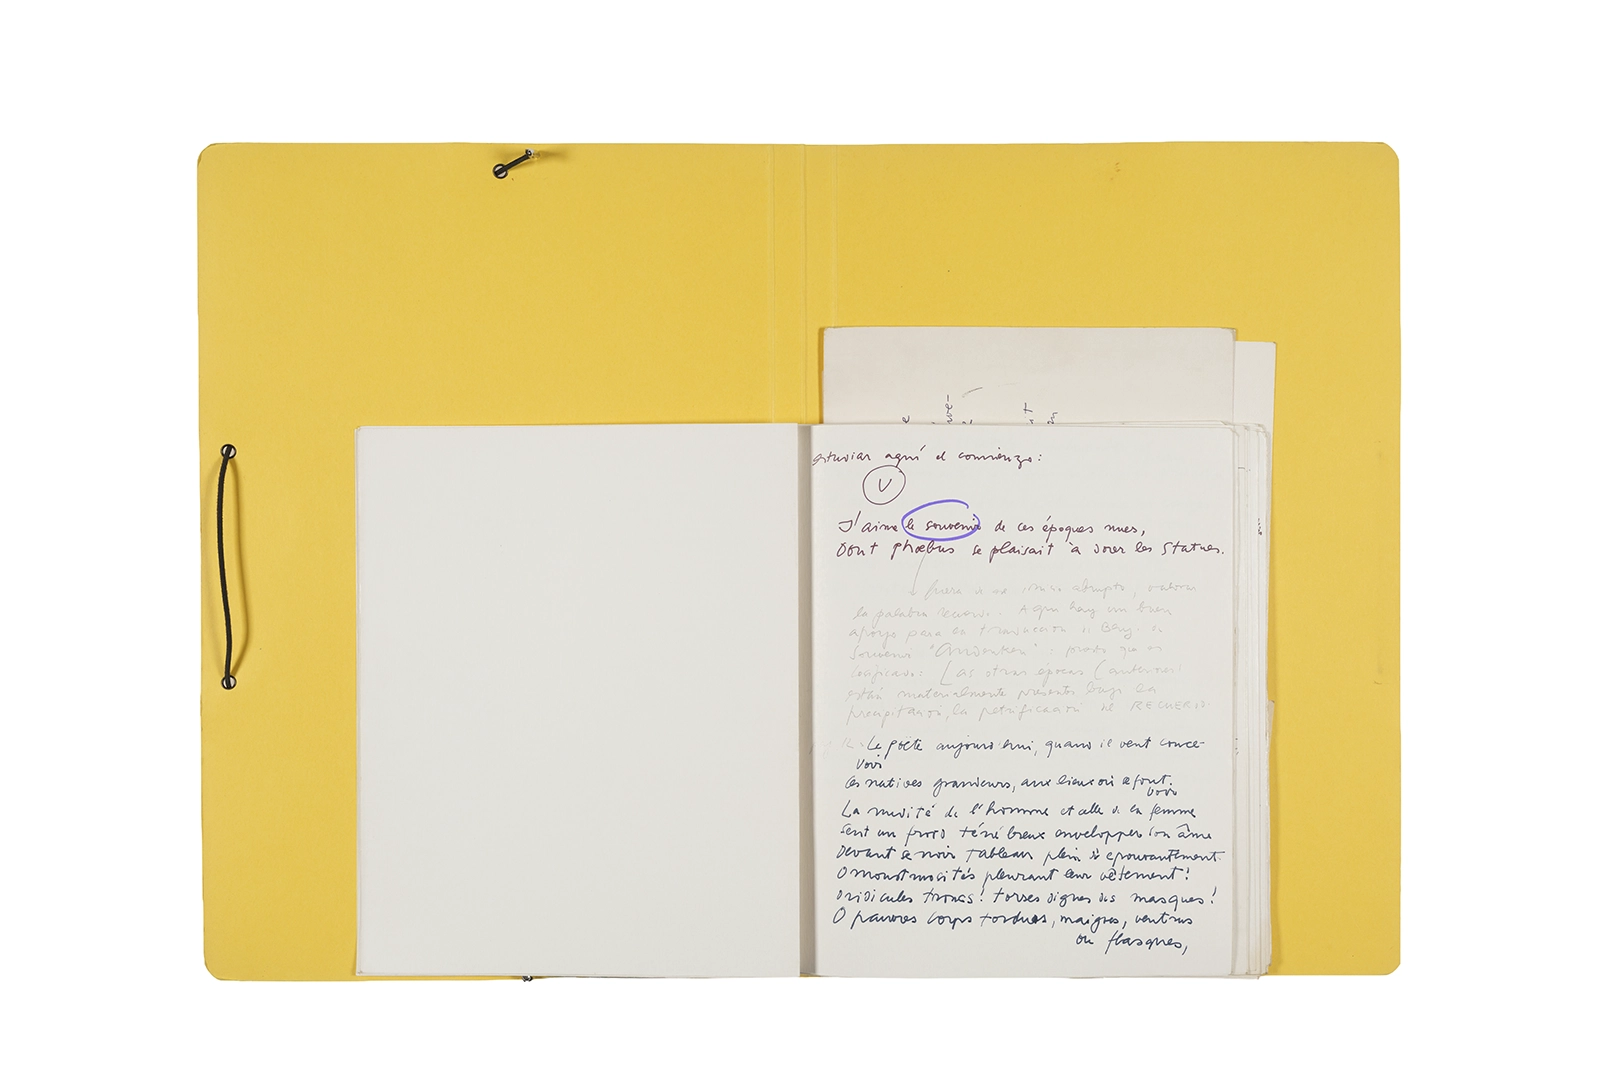 estudiar aquí el comienzo:
V
J'aime le souvenir de ces époques nues,
Dont Phœbus se plaisait à dorer les statues.
fuera de ese abrupto, valorar
la palabra recuerdo. Aquí hay un buen
apoyo para la traducción de Benj. de
souvenir "Andenken": puesto que es
cosificado: Las otras épocas (anteriores)
están materialmente presentes bajo la
precipitación, la petrificación del RECUERDO.
Le poète aujourd'hui, quand il veut conce-
voir
Ces natives grandeurs, aux lieux où se font
voir
La nudité de l'homme et celle de la femme
Sent un froid ténébreux envelopper son âme
Devant ce noir tableau plein d'épouvantement.
O monstruosités pleurant leur vêtement!
O ridicules troncs! torses dignes des masques!
O pauvres corps tordus, maigres, ventrus
ou flasques,